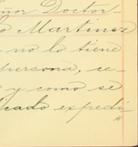 ñor Doctor
Martinez
no lo tiene
persona, ce
y como se
cado expedi